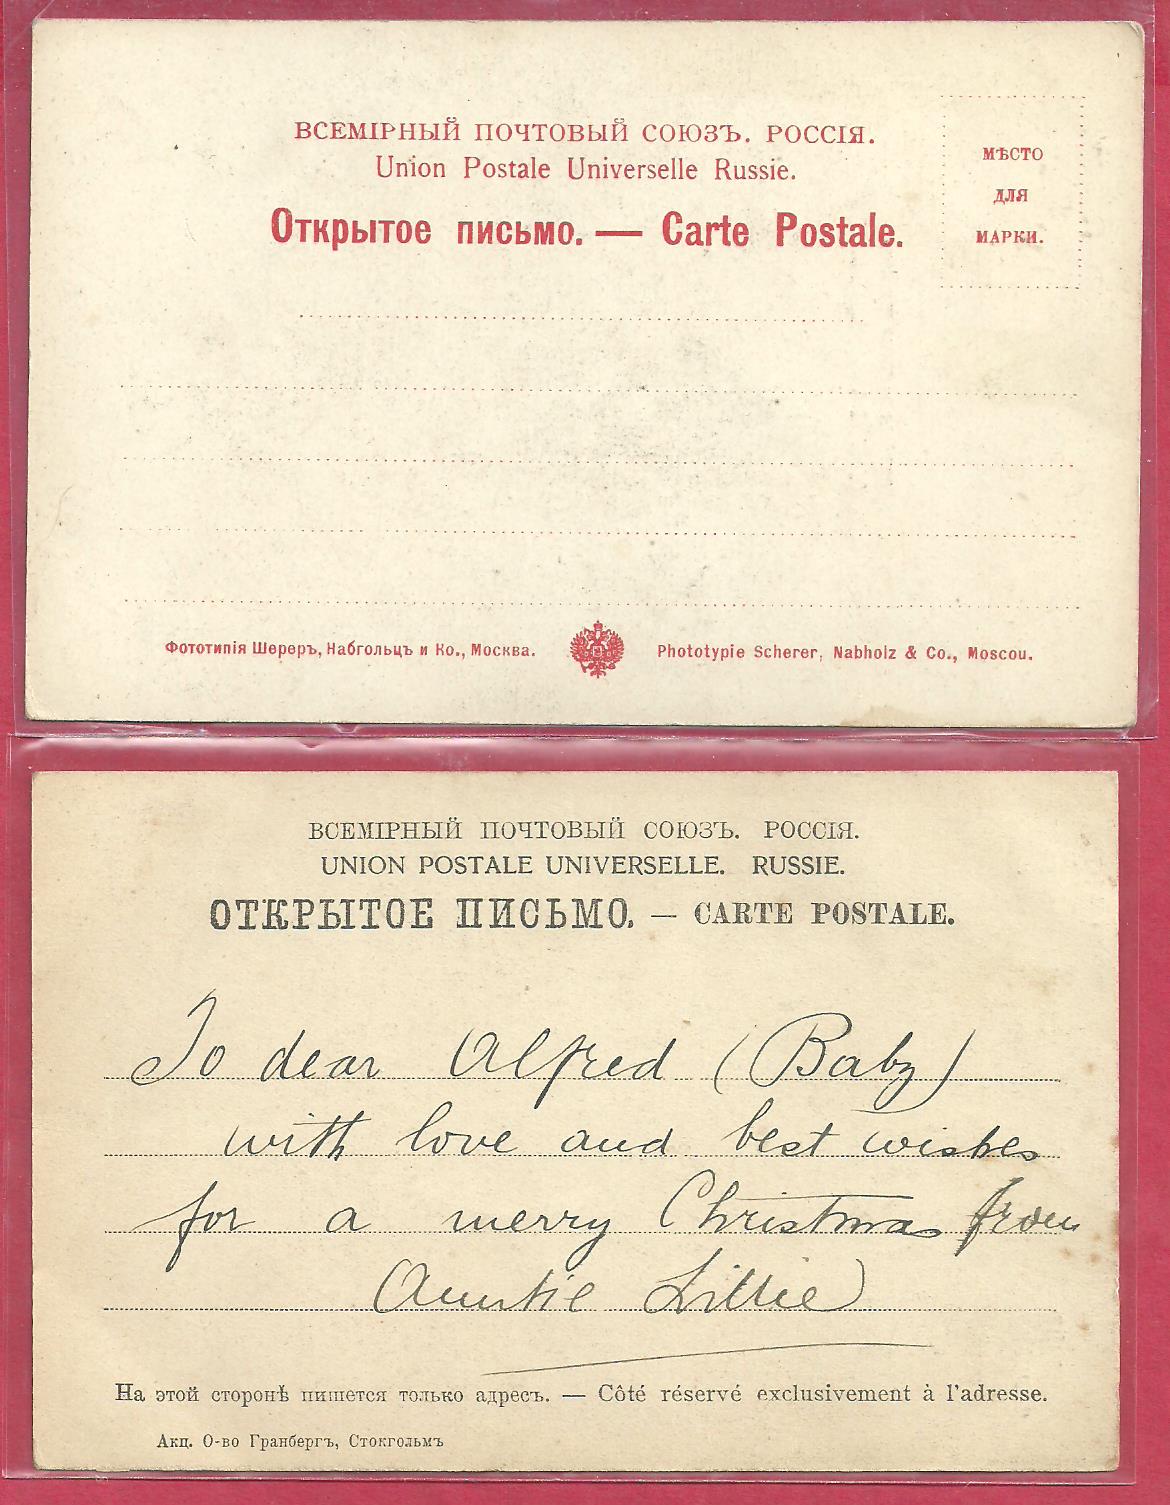 ВСЕМІРНЫЙ ПОЧТОВЫЙ СОЮЗЪ. РОССІЯ.
Union Postale Universelle Russie.
Открытое письмо. — Carte Postale.
МѢСТО
ДЛЯ
МАРКИ.
Фототипія Шереръ, Набгольцъ и Ко., Москва.
Phototypie Scherer, Nabholz & Co., Moscou.
ВСЕМІРНЫЙ ПОЧТОВЫЙ СОЮЗЪ. РОССІЯ.
UNION POSTALE UNIVERSELLE. RUSSIE.
ОТКРЫТОЕ ПИСЬМО. — CARTE POSTALE.
To dear Alfred (Baby)
with love and best wishes
for a merry Christmas from
Auntie Lillie
На этой сторонѣ пишется только адресъ. — Côté réservé exclusivement à l'adresse.
Акц. О-во Гранбергъ, Стокгольмъ